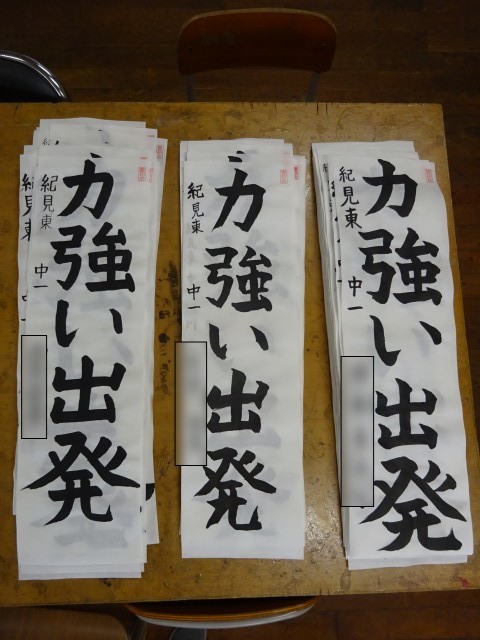 力強い出発
紀見東 中一
力強い出発
紀見東 中一
力強い出発
紀見東 中一